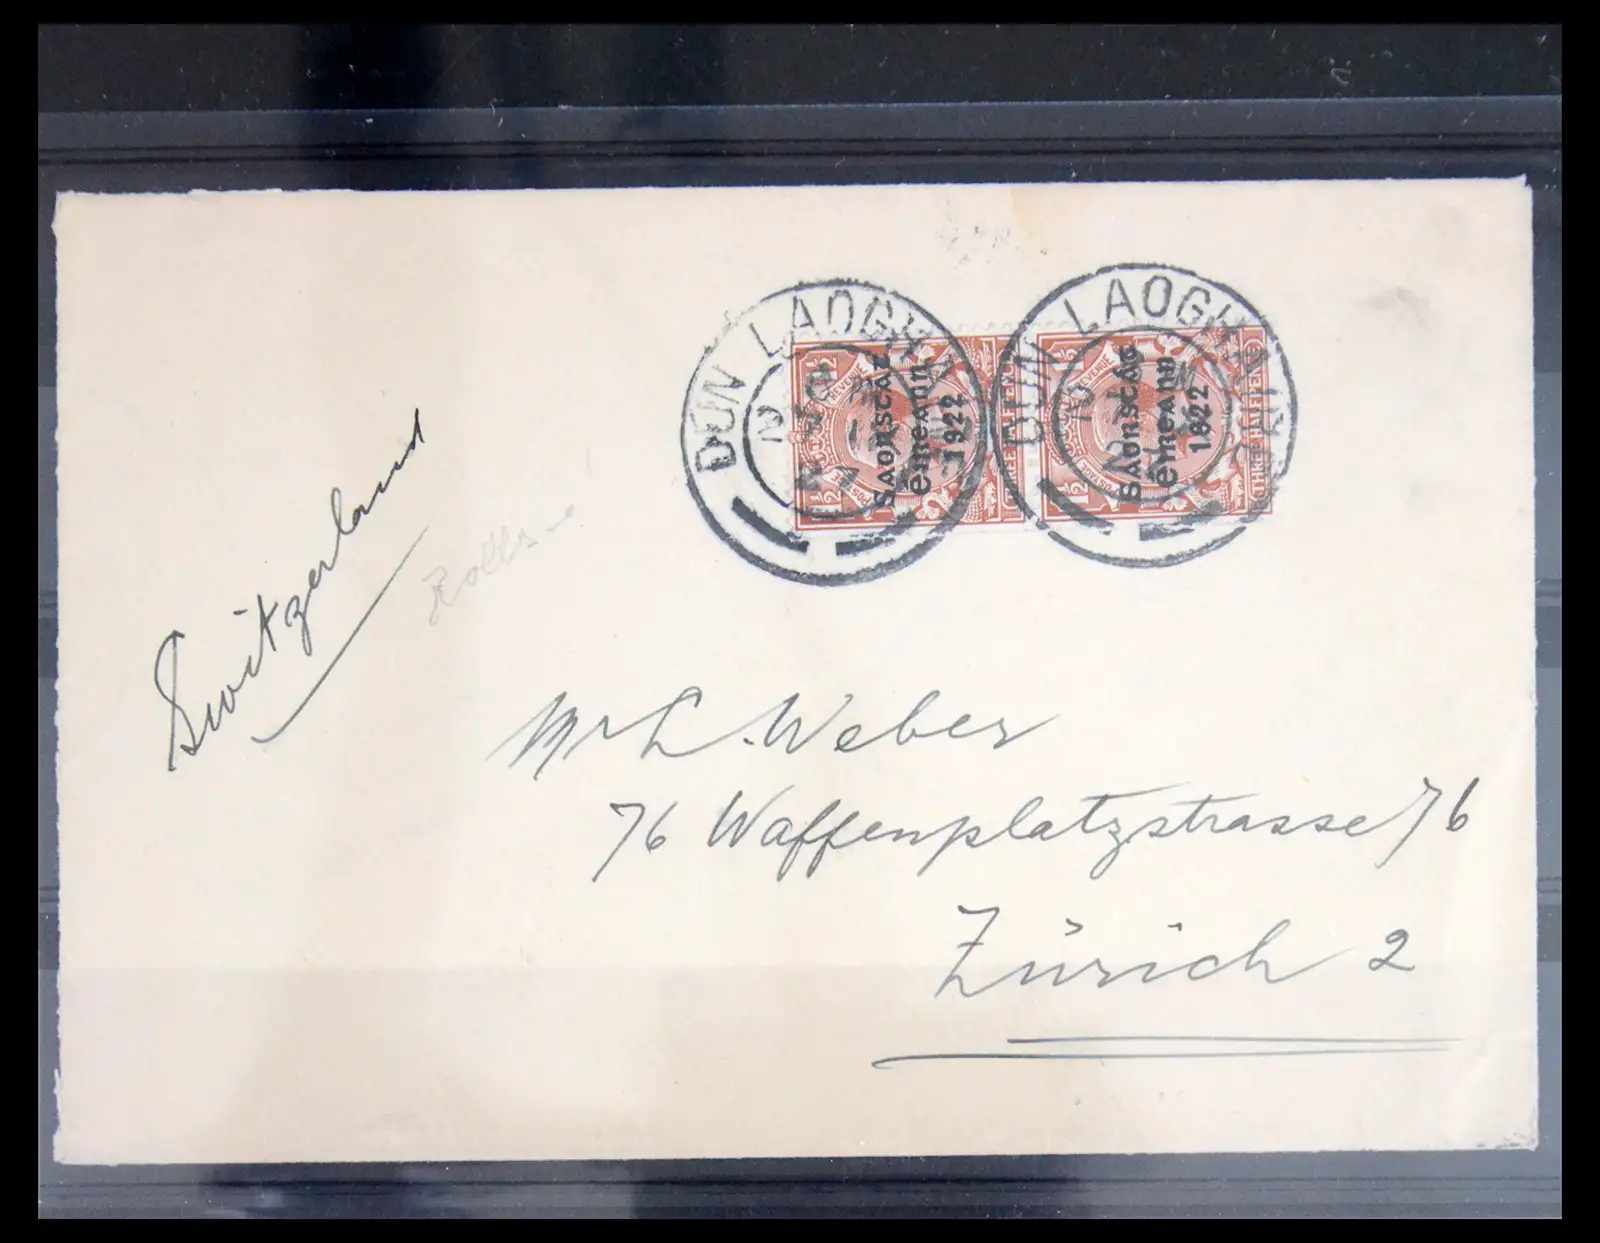 DUN LAOGH
DUN LAOGH
SAORSTÁT
éireann
1922
SAORSTÁT
éireann
1922
THREE HALFPENCE
REVENUE
POSTAGE
Switzerland
Mr L. Weber
76 Waffenplatzstrasse 76
Zürich 2